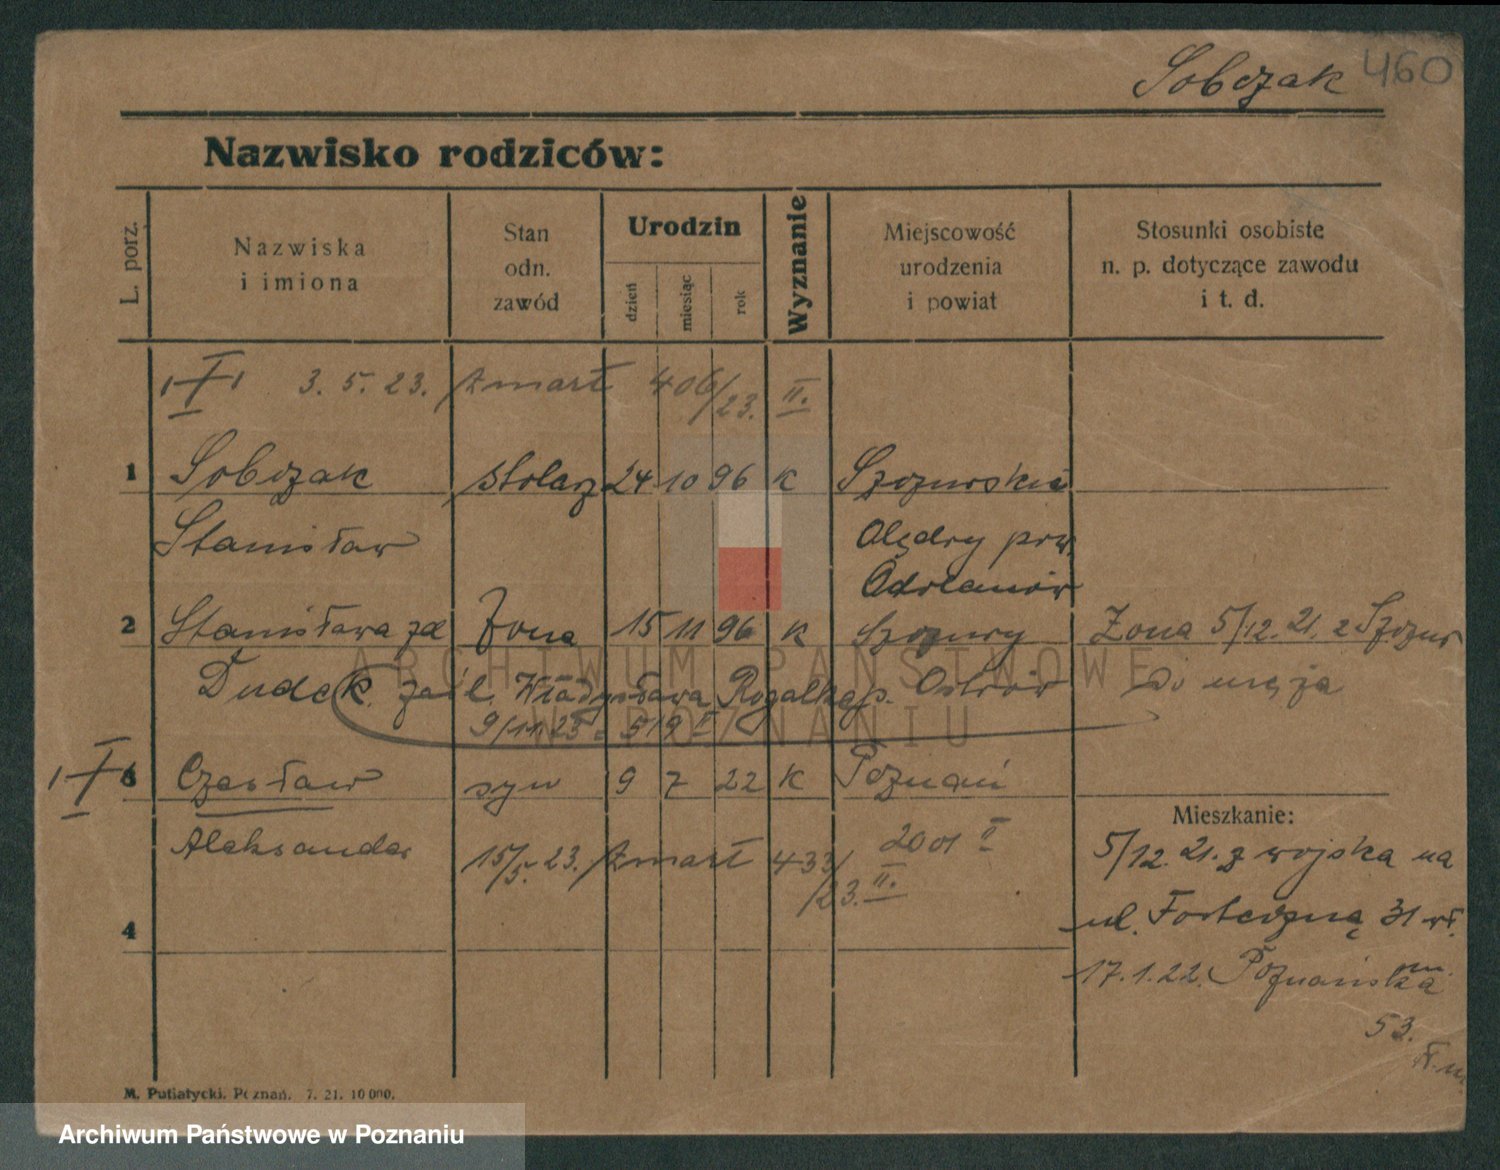 Sobczak 460
Nazwisko rodziców:
L. porz.
Nazwiska
i imiona
Stan
odn.
zawód
Urodzin
dzień
miesiąc
rok
Wyznanie
Miejscowość
urodzenia
i powiat
Stosunki osobiste
n. p. dotyczące zawodu
i t. d.
3. 5. 23. zmarł 406/23. II.
1 Sobczak stolarz 24 10 96 K Szczurskie
Stanisław Olędry pow.
Odolanów
2 Stanisława zd Żona 15 11 96 K Szczury Żona 5/12. 21. z Szczur
Dudek. zaśl. Władysława Rogalka p. Ostrów do męża
9/11. 23 519 I
3 Czesław syn 9 7 22 K Poznań
Mieszkanie:
Aleksander 15/5. 23. zmarł 433/23. II. 2001 II
5/12 21. z wojska na
ul. Forteczną 31
4
17. 1. 22. Poznańska
53.
M. Putiatycki. Poznań. 7. 21. 10 000.
ARCHIWUM PAŃSTWOWE
W POZNANIU
Archiwum Państwowe w Poznaniu